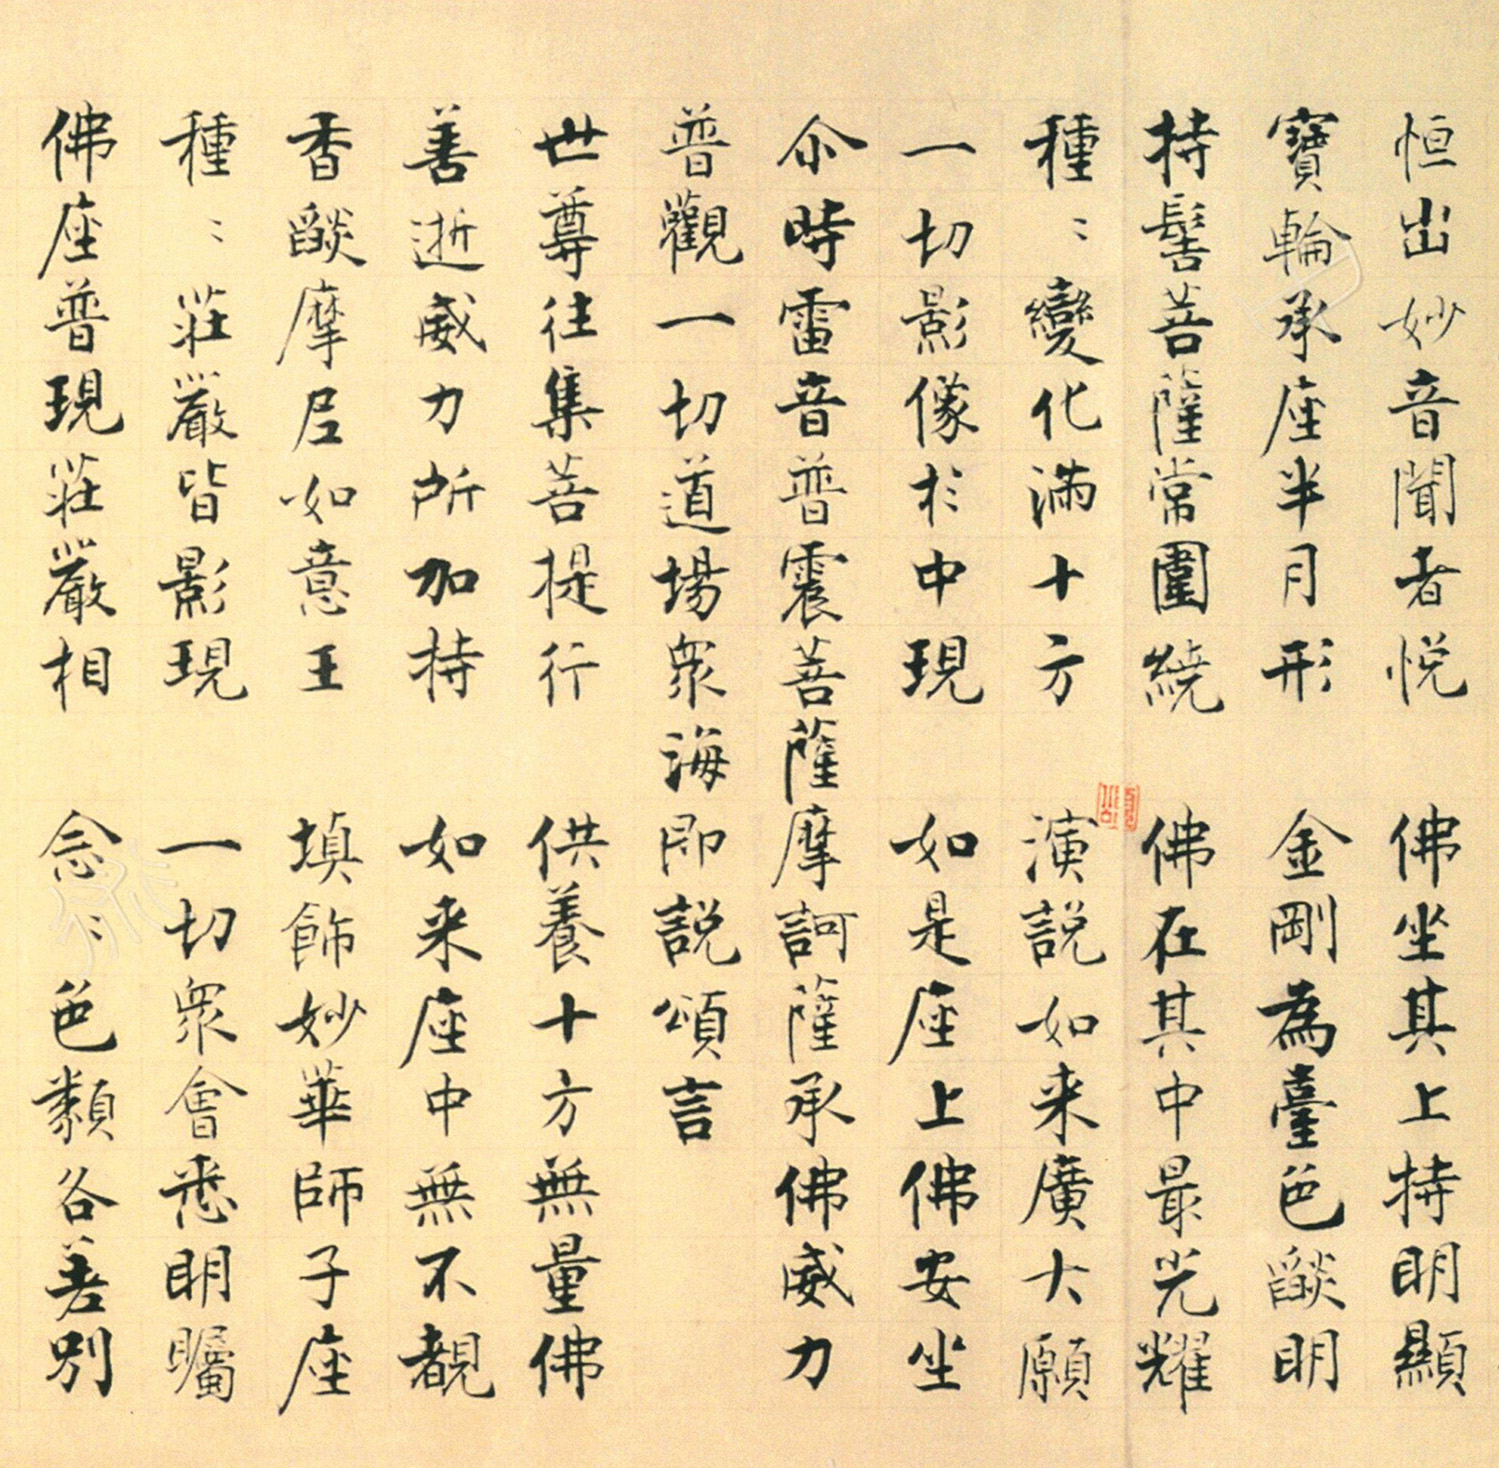 恒出妙音聞者悅　佛坐其上特明顯
寶輪承座半月形　金剛為臺色燄明
持髻菩薩常圍繞　佛在其中最光耀
種〻變化滿十方　演説如来廣大願
一切影像於中現　如是座上佛安坐
尒時雷音普震菩薩摩訶薩承佛威力
普觀一切道場眾海即説頌言
世尊往集菩提行　供養十方無量佛
善逝威力所加持　如来座中無不覩
香燄摩尼如意王　填飾妙華師子座
種〻莊嚴皆影現　一切眾會悉明矚
佛座普現莊嚴相　念〻色類各差別